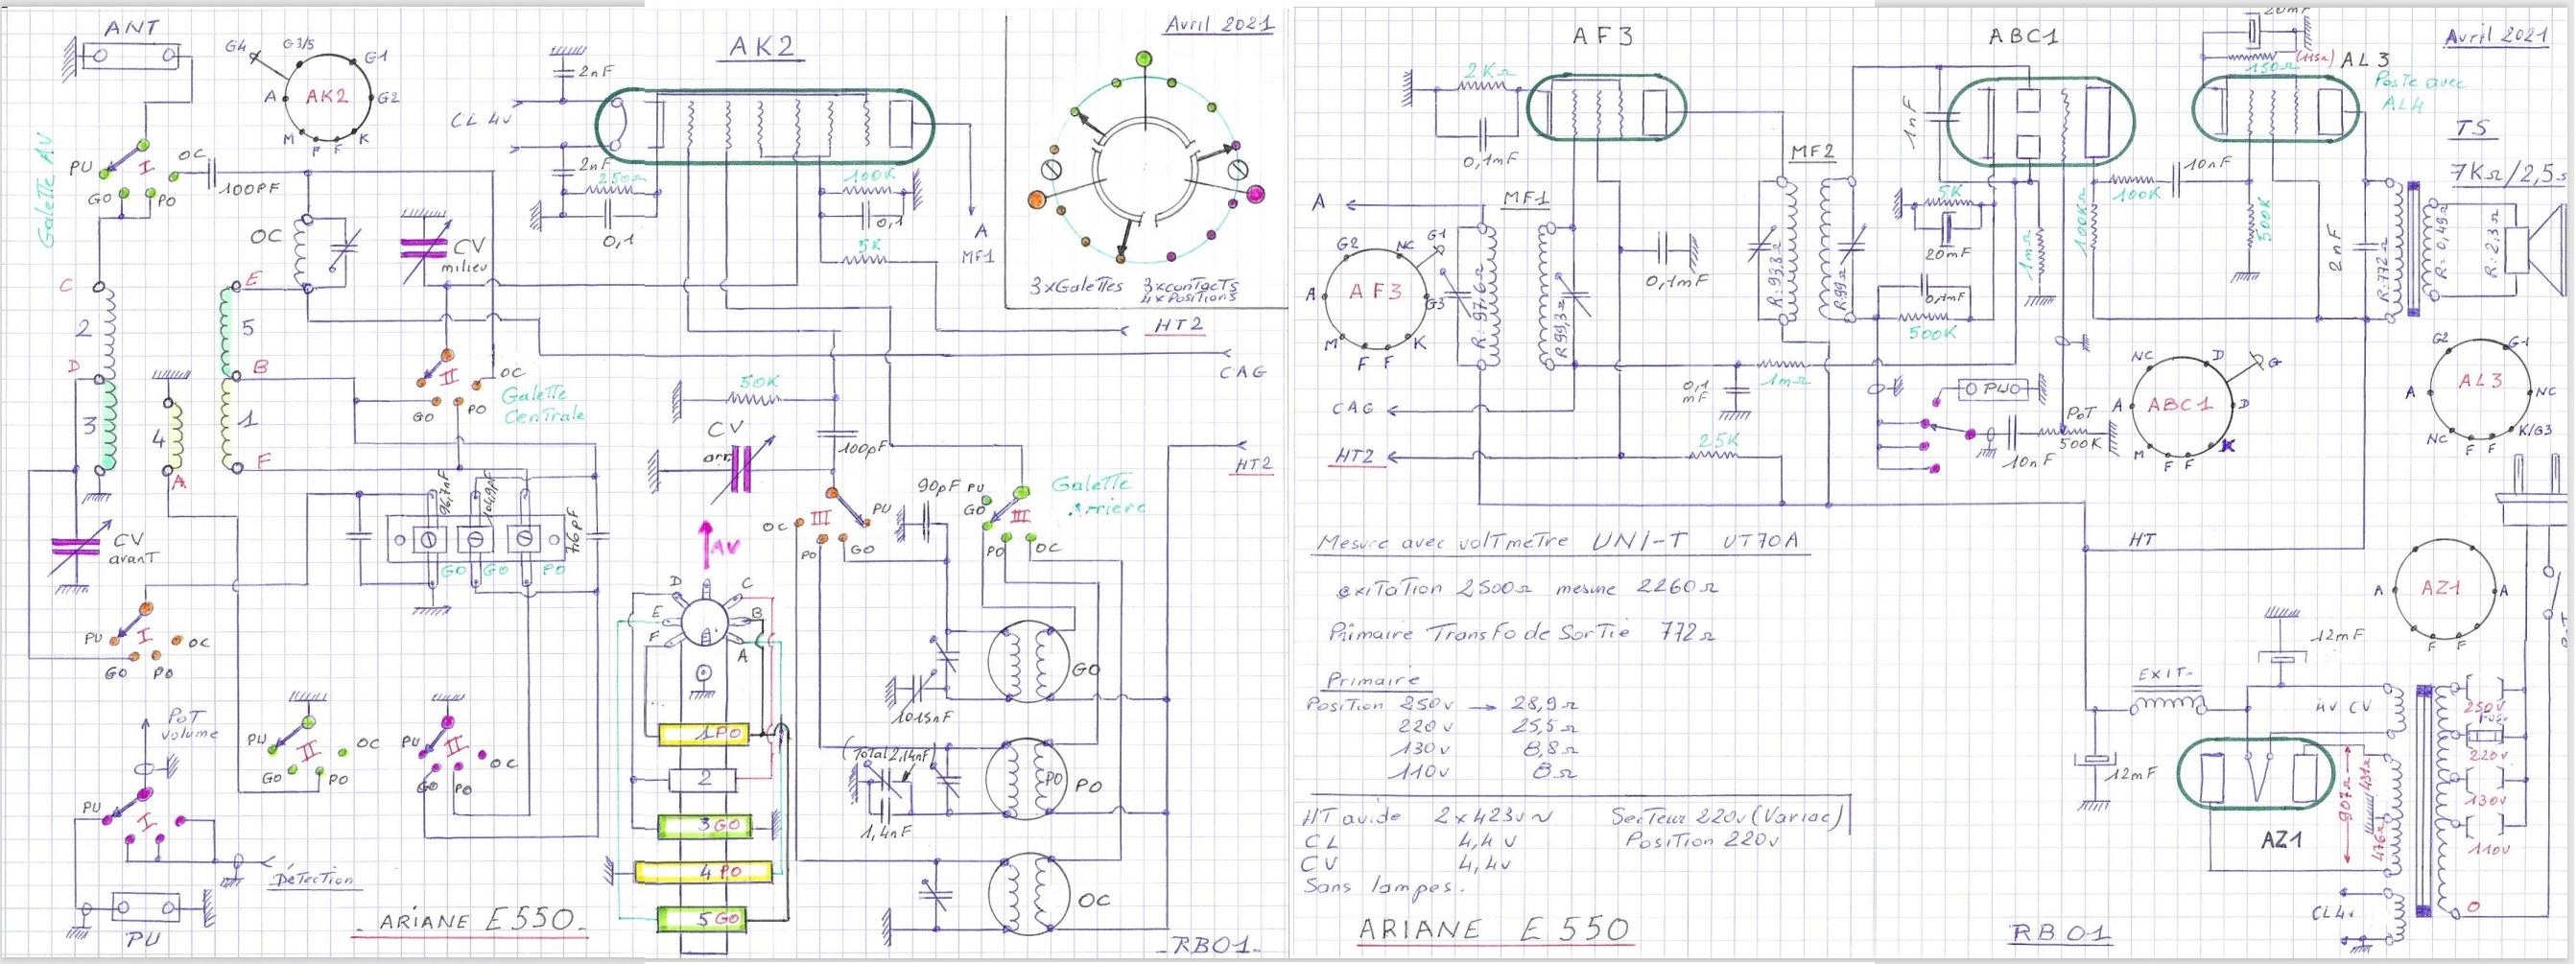 ANT
G4
G3/5
G1
A
AK2
G2
M
F
F
K
Galette AV
PU
I
OC
GO
PO
100PF
OC
CV
milieu
C
E
2
5
D
B
3
4
1
A
F
II
OC
GO
PO
Galette
Centrale
CV
avant
96,7nF
104,9pF
76pF
GO
GO
PO
PU
I
OC
GO
PO
PoT
volume
PU
I
PU
II
OC
GO
PO
PU
II
OC
GO
PO
Détection
PU
ARIANE E550
AK2
2nF
CL 4v
2nF
250Ω
0,1
100K
0,1
5K
A
MF1
HT2
CAG
50K
CV
arr
100pF
HT2
AV
OC
III
PU
PO
GO
90pF
PU
GO
III
PO
OC
Galette
Arrière
D
C
E
B
F
A
1PO
2
3GO
4PO
5GO
GO
1015nF
(Total 2,14nF)
1,4nF
PO
PO
OC
-RB01-
Avril 2021
3xGalettes
3xcontacts
4xPositions
AF3
2KΩ
0,1mF
A
MF1
G2
NC
G1
A
AF3
G3
M
F
F
K
R:97,6Ω
R99,3Ω
0,1mF
MF2
R:99,8Ω
R99Ω
CAG
HT2
0,1
mF
1mΩ
25K
ABC1
1nF
5K
20mF
1mΩ
100KΩ
100K
10nF
500K
0,1mF
500K
PU
10nF
PoT
500K
NC
D
G
A
ABC1
D
M
F
F
K
20mF
150Ω
(115Ω)
AL3
Avril 2021
Poste avec
AL4
TS
7KΩ/2,5Ω
2nF
R:772Ω
R=0,49Ω
R:2,3Ω
G2
G1
A
AL3
NC
NC
F
F
K/G3
Mesure avec voltmetre UNI-T UT70A
exitation 2500Ω mesure 2260Ω
Primaire Transfo de Sortie 772Ω
Primaire
Position 250v → 28,9Ω
220v 25,5Ω
130v 8,8Ω
110v 8Ω
HT avide 2x423v~ Secteur 220v (Variac)
CL 4,4v Position 220v
CV 4,4v
Sans lampes.
ARIANE E 550
HT
A
AZ1
A
F
F
12mF
EXIT-
12mF
4v CV
AZ1
907Ω
431Ω
476Ω
250v
Fuse
220v
130v
110v
CL4v
O
RB01